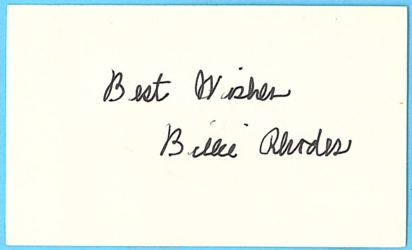 Best Wishes
Billie Rhodes